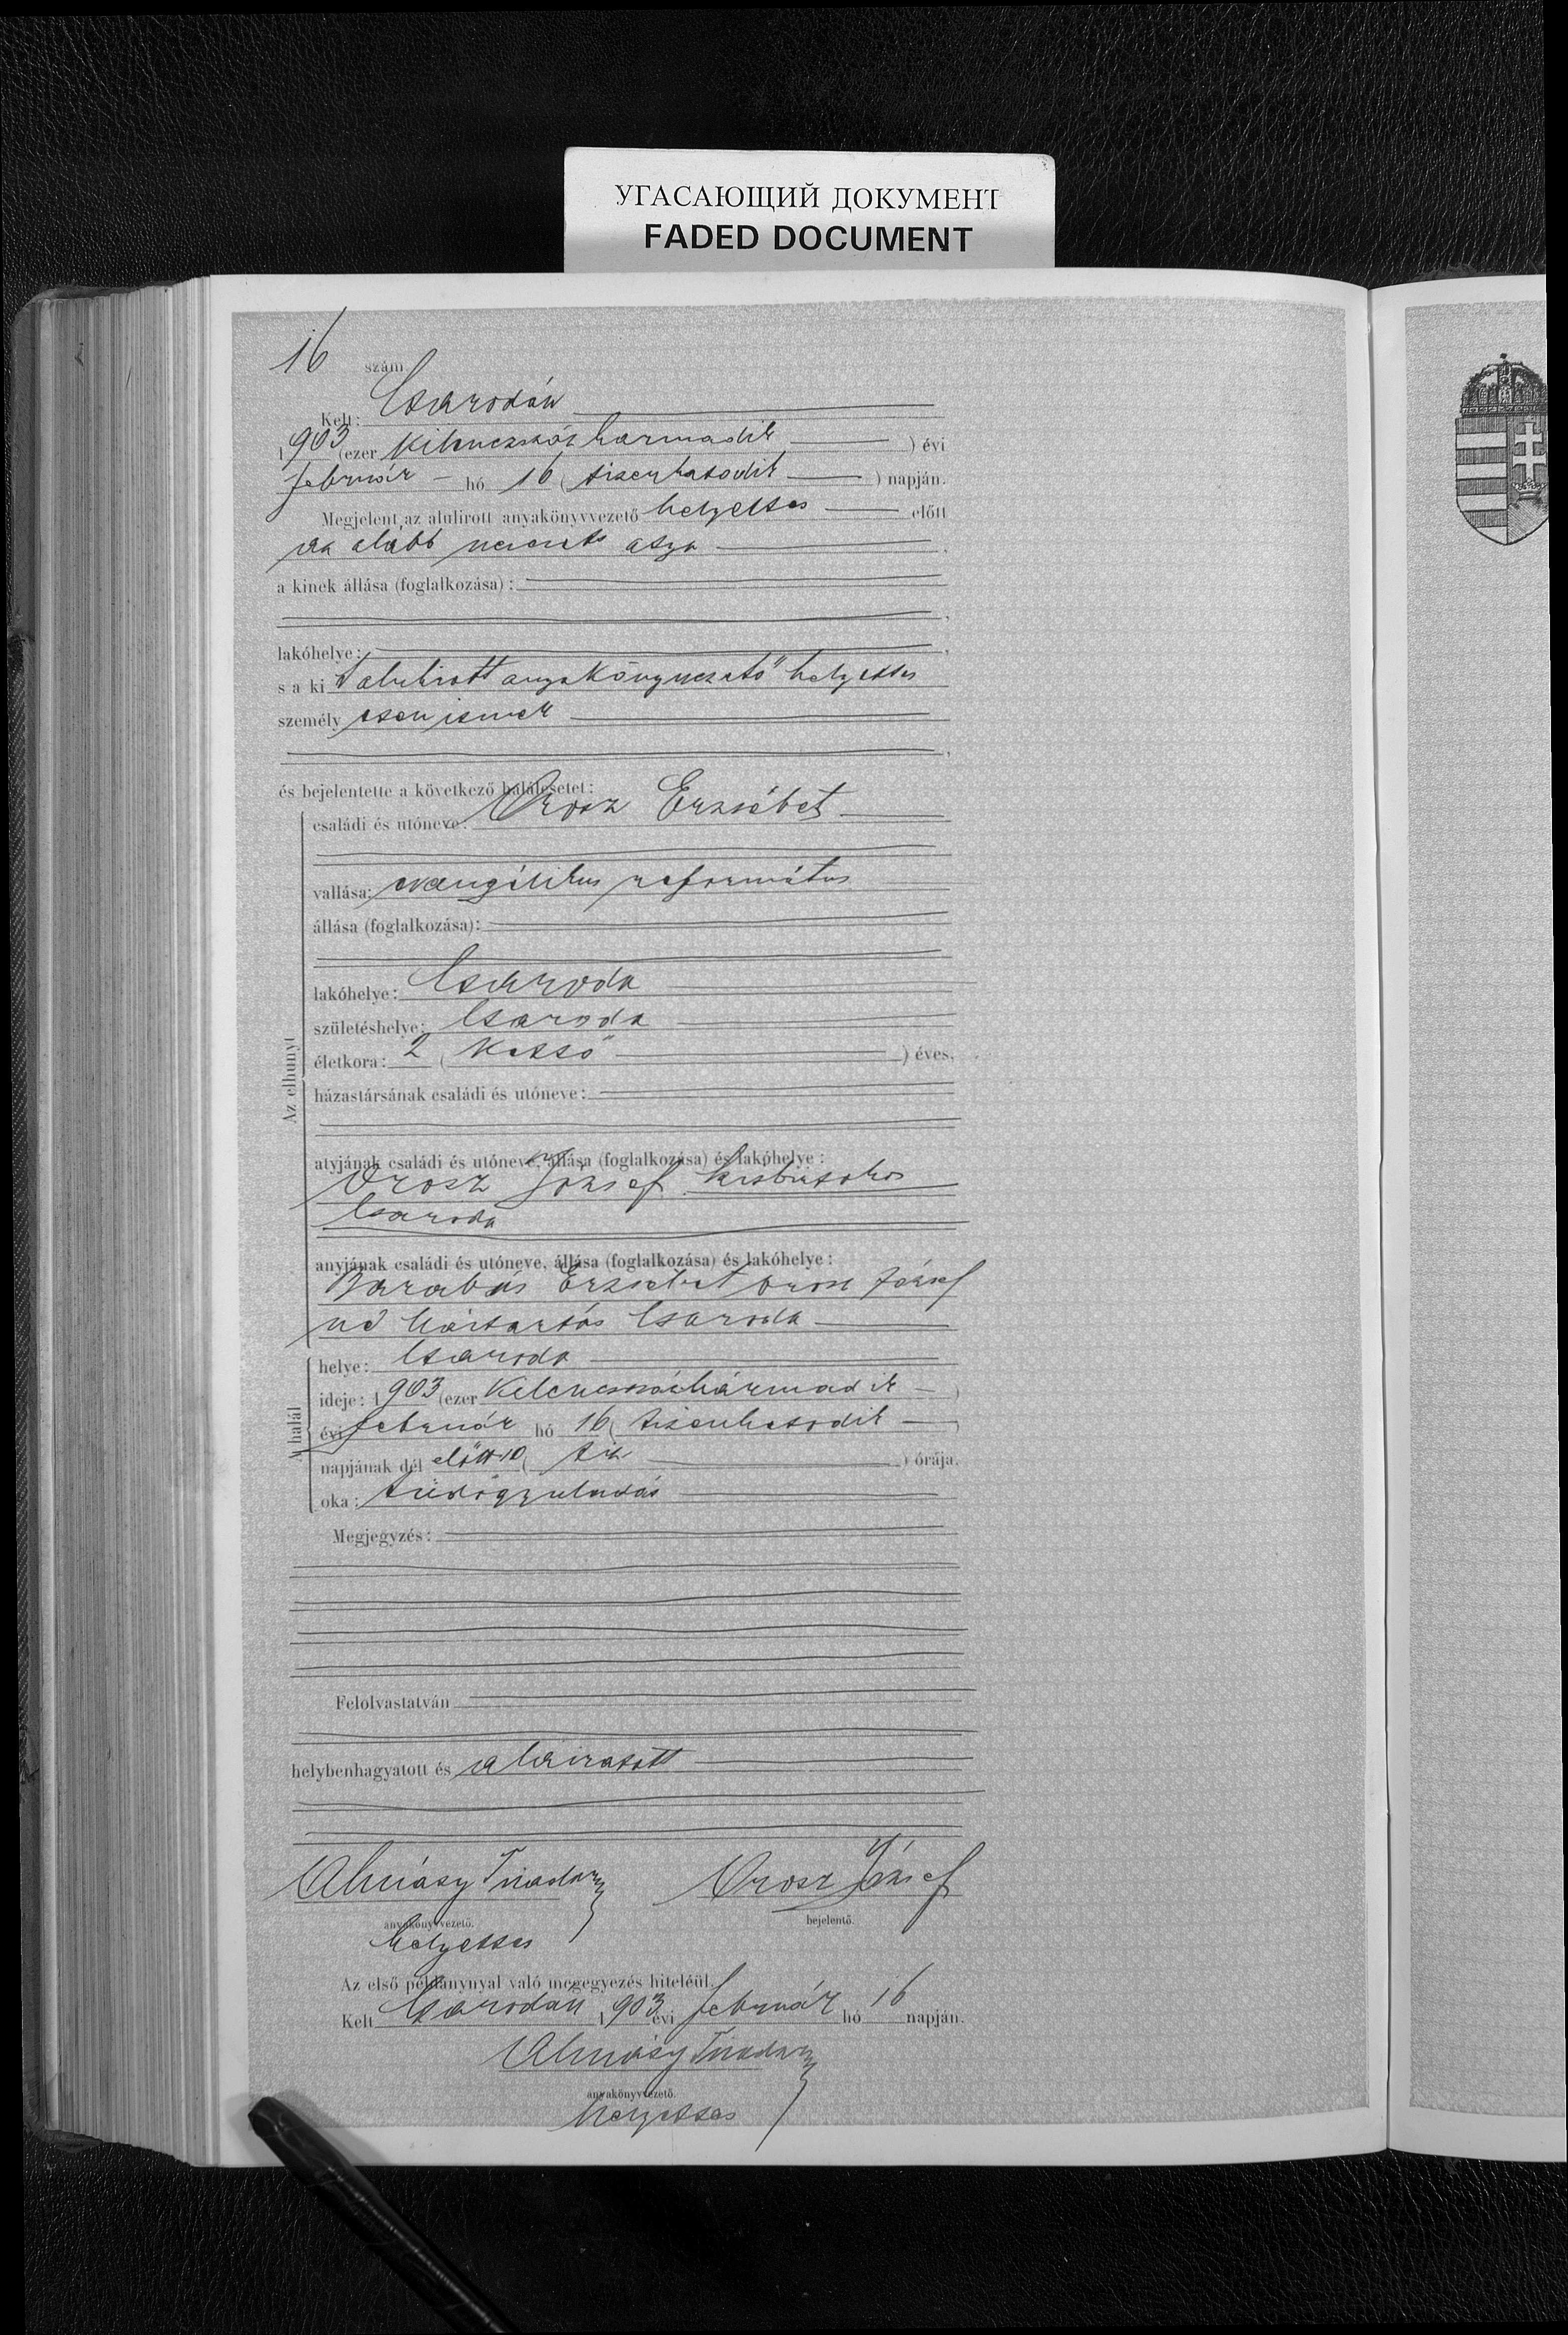 УГАСАЮЩИЙ ДОКУМЕНТ
FADED DOCUMENT
16 szám.
Kelt: Csarodán
1903 (ezer kilenczszáz harmadik ) évi
február hó 16 (tizenhatodik ) napján.
Megjelent az alulirott anyakönyvvezető helyettes előtt
az alább nevezett atya
a kinek állása (foglalkozása):
lakóhelye:
s a ki alulirott anyakönyvvezető helyettes
személyesen ismer
és bejelentette a következő halálesetet:
Az elhunyt
családi és utóneve: Orosz Erzsébet
vallása: evangélikus református
állása (foglalkozása):
lakóhelye: Csaroda
születéshelye: Csaroda
életkora: 2 (kettő ) éves,
házastársának családi és utóneve:
atyjának családi és utóneve, állása (foglalkozása) és lakóhelye:
Orosz József kisbirtokos
Csaroda
anyjának családi és utóneve, állása (foglalkozása) és lakóhelye:
Barabás Erzsébet orosz József
né háztartás Csaroda
A halál
helye: Csaroda
ideje: 1903 (ezer kilenczszázhármadik )
évi február hó 16 (tizenhatodik )
napjának dél előtt 10 (tiz ) órája.
oka: tüdőgyuladás
Megjegyzés:
Felolvastatván
helybenhagyatott és aláiratott
Almásy Orosz József
anyakönyvvezető. bejelentő.
helyettes
Az első példánynyal való megegyezés hiteléül.
Kelt Csarodán 1903 évi február hó 16 napján.
Almásy
anyakönyvvezető.
helyettes